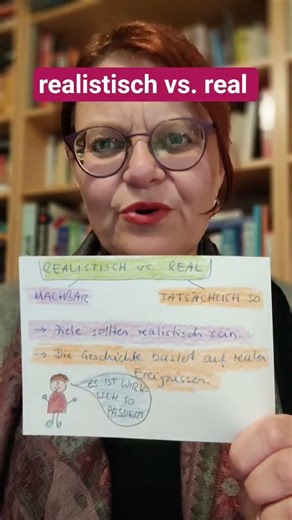 realistisch vs. real
REALISTISCH VS. REAL
MACHBAR
TATSÄCHLICH SO
→ Ziele sollten realistisch sein.
→ Die Geschichte basiert auf realen
Ereignissen.
ES IST WIRK-
LICH SO
PASSIERT